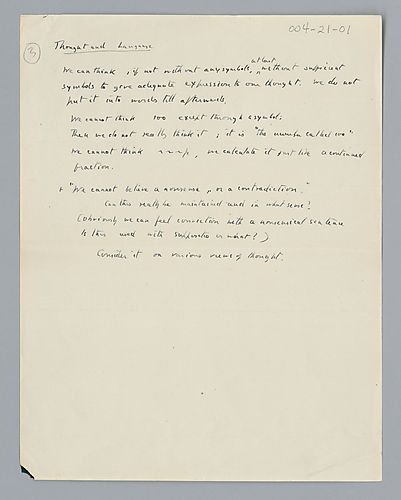 004-21-01
3
Thought and Language
We can think, if not without any symbols, at least without sufficient
symbols to give adequate expression to our thought. We do not
put it into words till afterwards.
We cannot think 100 except through a symbol;
Then we do not really think it; it is "the number called 100"
We cannot think , we calculate it just like a continued
fraction.
+ "We cannot believe a nonsense, or a contradiction."
Can this really be maintained and in what sense?
(Obviously we can feel conviction with a nonsensical sentence
Is this used with supposition or what?)
Consider it on various views of thought.